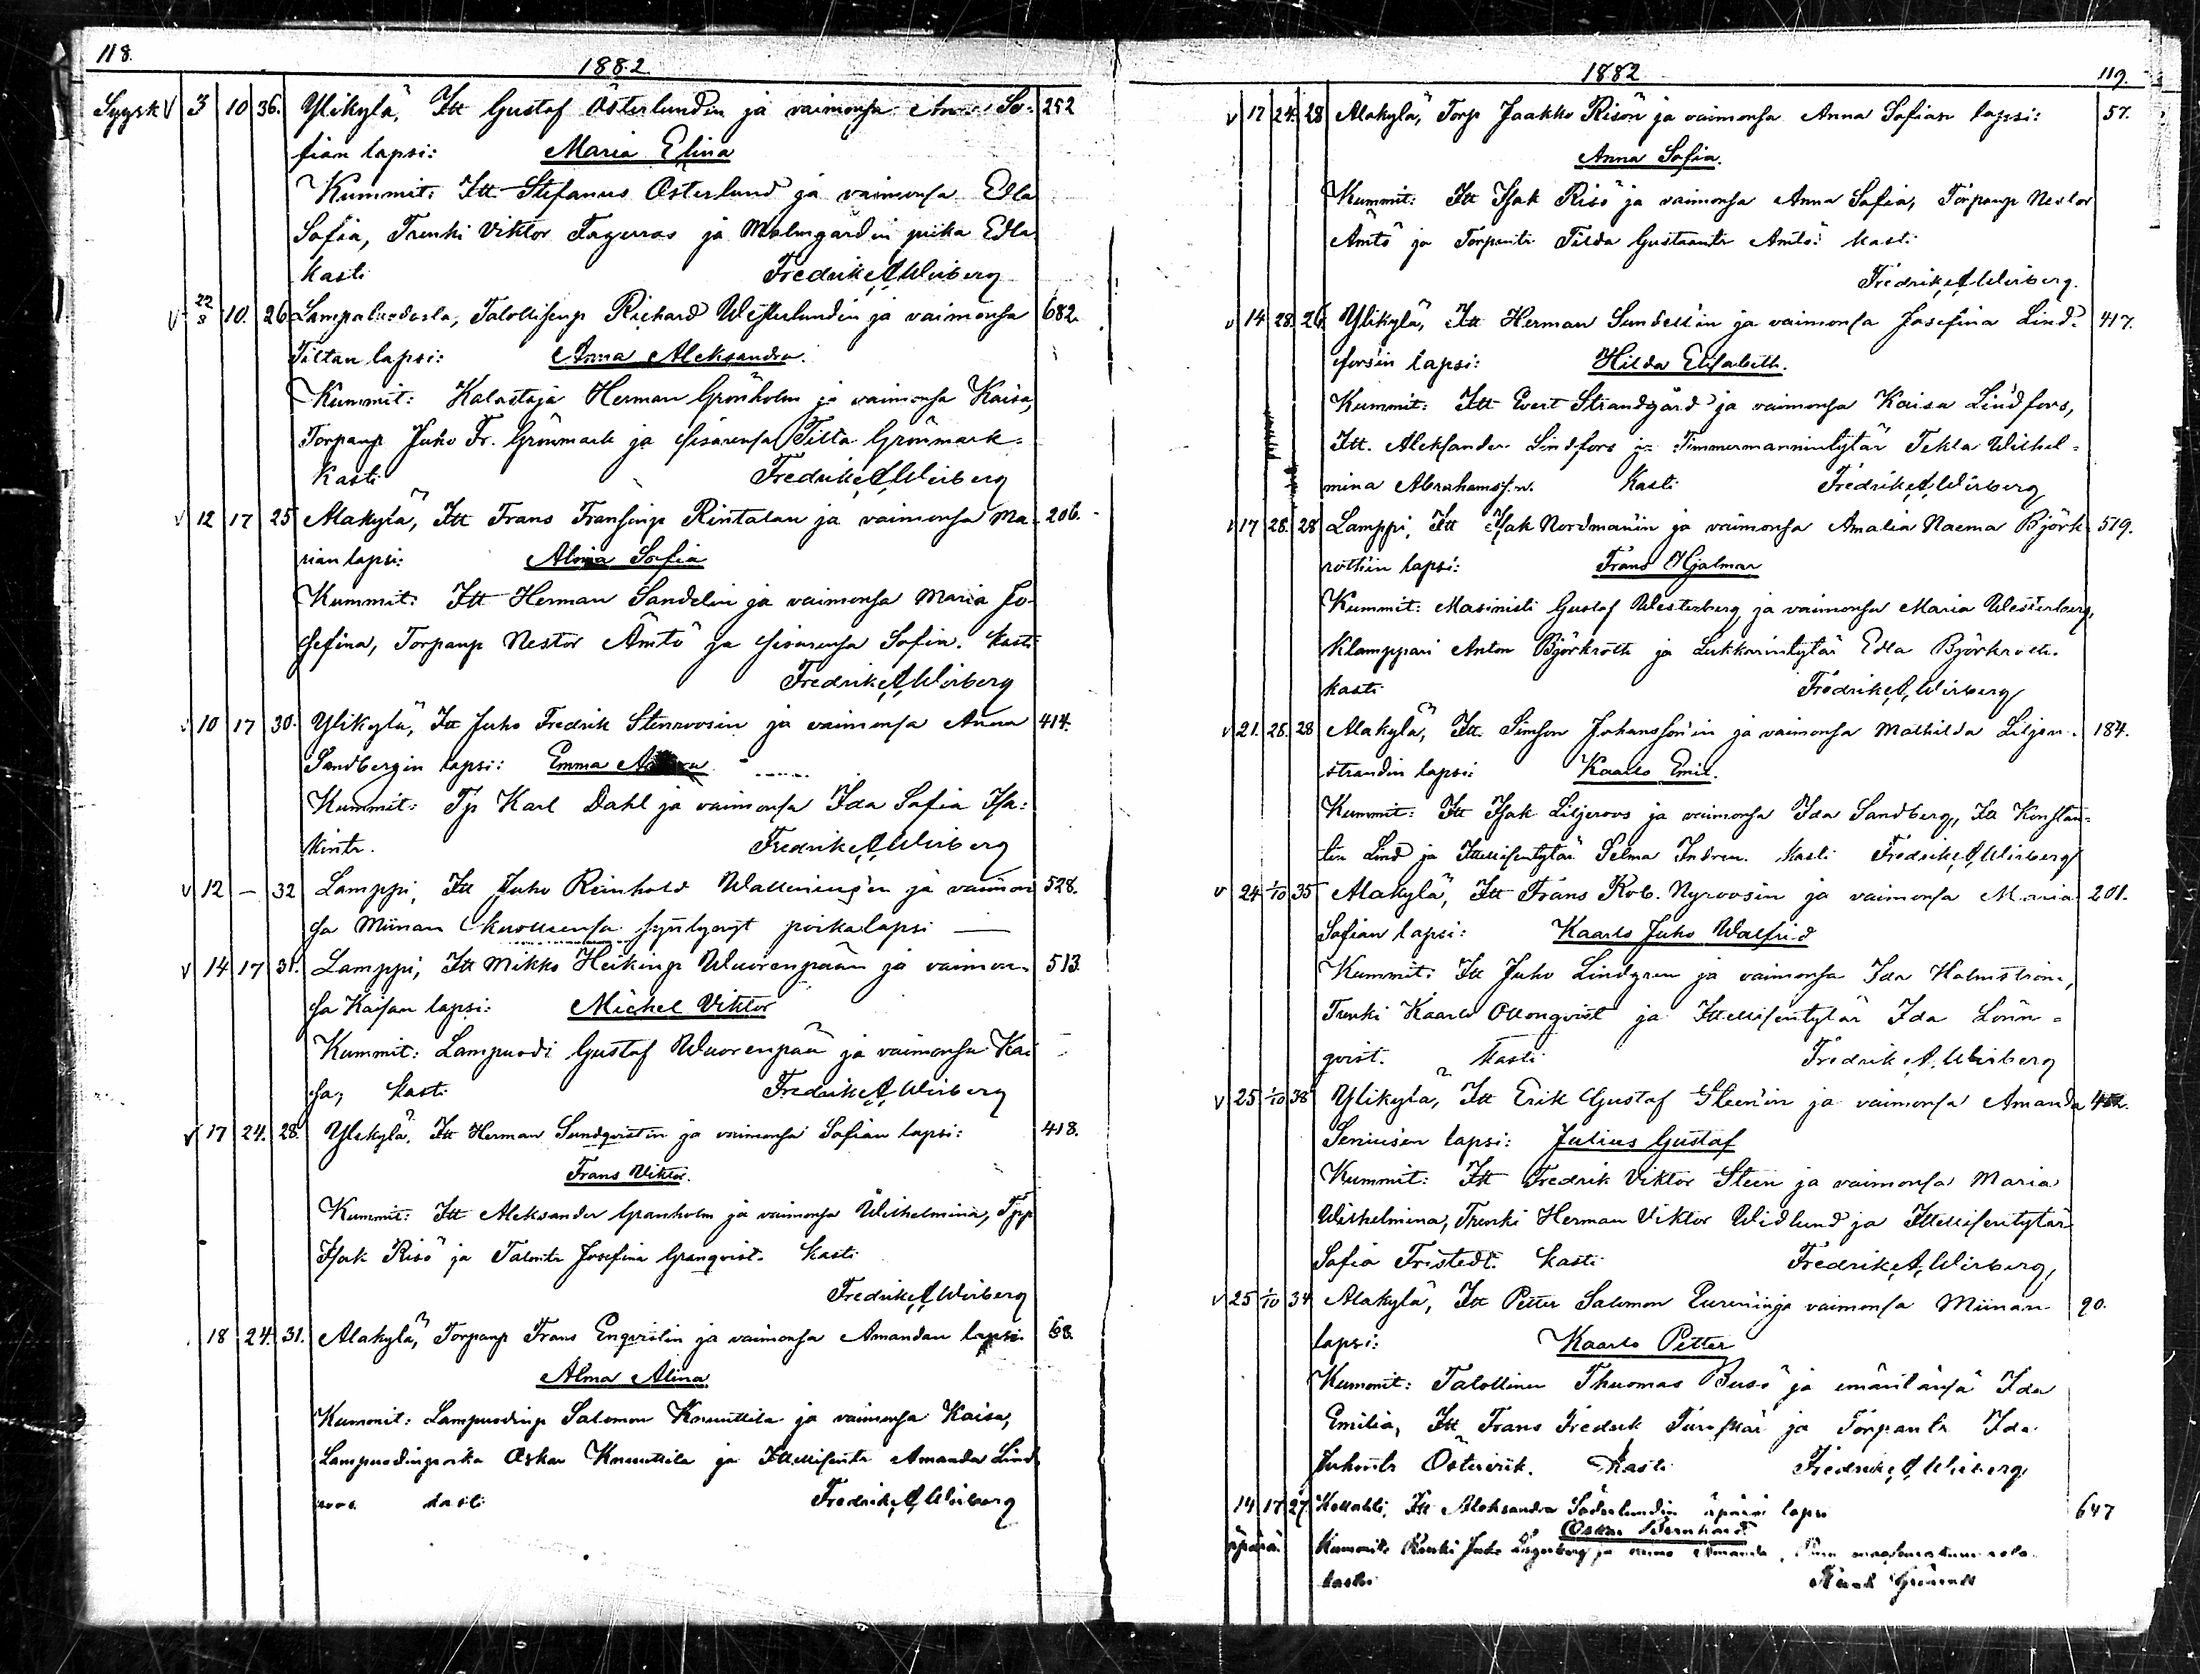 118.
1882.
Syysk. V 3 10 36. Ylikylä, Itt Gustaf Österlundin ja vaimonsa Anna So- 252
fian lapsi: Maria Elina
Kummit: Itt Stefanus Österlund ja vaimonsa Edla
Sofia, Trenki Viktor Fagerroos ja Malmgårdin piika Edla
kasti Fredrik A. Wirberg
V 22/8 10. 26 Lampaluodosta, Talollisenp Richard Westerlundin ja vaimonsa 682
Tiltan lapsi: Anna Aleksandra.
Kummit: Kalastaja Herman Grönholm ja vaimonsa Kaisa,
Torpanp Juho Fr. Grönmark ja sisarensa Tilta Grönmark.
Kasti Fredrik A. Wirberg
V 12 17 25 Alakylä, Itt Frans Fransinp Rintalan ja vaimonsa Ma- 206.
rian lapsi: Alma Sofia
Kummit: Itt Herman Sandelin ja vaimonsa Maria Jo-
sefina, Torpanp Nestor Åmtö ja sisarensa Sofia. kasti
Fredrik A. Wirberg
V 10 17 30. Ylikylä, Itt Juho Fredrik Stenroosin ja vaimonsa Anna 414.
Sandbergin lapsi: Emma
Kummit: Tp Karl Dahl ja vaimonsa Ida Sofia Isa-
kintr. Fredrik A. Wirberg
V 12 — 32 Lamppi, Itt Juho Reinhold Walleniuksen ja vaimon 528.
sa Miinan kuolleensa syntynyt poikalapsi —
V 14 17 31. Lamppi, Itt Mikko Heikinp Wuorenpään ja vaimon- 513.
sa Kaisan lapsi: Michel Viktor
Kummit: Lampuodi Gustaf Wuorenpää ja vaimonsa Kai
sa; kasti Fredrik A. Wirberg
V 17 24. 28. Ylikylä, Itt Herman Sundqvistin ja vaimonsa Sofian lapsi: 418.
Frans Viktor.
Kummit: Itt Aleksander Granholm ja vaimonsa Wilhelmina, Tpp
Isak Risö ja Talontr Josefina Granqvist. kasti
Fredrik A. Wirberg
18 24. 31. Alakylä, Torpanp Frans Enqvistin ja vaimonsa Amandan lapsi 68.
Alma Alina
Kummit: Lampuodinp Salomon Knuuttila ja vaimonsa Kaisa,
Lampuodinpoika Oskar Knuuttila ja Itellisentr Amanda Lind
roos. kasti Fredrik A. Wirberg
1882 119.
V 17 24. 28 Alakylä, Torp Jaakko Risön ja vaimonsa Anna Sofian lapsi: 57.
Anna Sofia.
Kummit: Itt Isak Risö ja vaimonsa Anna Sofia, Torpanp Nestor
Åmtö ja Torpantr Tilda Gustaantr Åmtö. kasti
Fredrik A. Wirberg.
V 14 28. 26 Ylikylä, Itt Herman Sundell'in ja vaimonsa Josefina Lind- 417.
fors'in lapsi: Hilda Elisabeth.
Kummit: Itt Evert Strandgård ja vaimonsa Kaisa Lindfors,
Itt. Aleksander Lindfors ja Timmermannintytär Tekla Wilhel-
mina Abrahamss:n. kasti Fredrik A. Wirberg
V 17 28. 28 Lamppi, Itt Isak Nordman'in ja vaimonsa Amalia Naema Björk- 519.
roth'in lapsi: Frans Hjalmar
Kummit: Masinisti Gustaf Westerberg ja vaimonsa Maria Westerberg,
Klamppari Anton Björkroth ja Lukkarintytär Edla Björkroth.
kasti Fredrik A. Wirberg
V 21. 28. 28 Alakylä, Itt. Simson Johansson'in ja vaimonsa Mathilda Liljen- 184.
strandin lapsi: Kaarlo Emil.
Kummit: Itt Isak Liljeroos ja vaimonsa Ida Sandberg, Itt Konstan-
tin Lind ja Itellisentytär Selma Indren. kasti Fredrik A. Wirberg
V 24 1/10 35 Alakylä, Itt Frans Rob. Nyroosin ja vaimonsa Maria 201.
Sofian lapsi: Kaarlo Juho Walfrid
Kummit: Itt Juho Lindgren ja vaimonsa Ida Holmström,
Trenki Kaarlo Ollonqvist ja Itellisentytär Ida Lönn-
qvist. kasti Fredrik A. Wirberg
V 25 1/10 38 Ylikylä, Itt Erik Gustaf Steen'in ja vaimonsa Amanda
Senius'en lapsi: Julius Gustaf
Kummit: Itt Fredrik Viktor Steen ja vaimonsa Maria
Wilhelmina, Trenki Herman Viktor Widlund ja Itellisentytär
Sofia Fristedt. kasti Fredrik A. Wirberg,
V 25 1/10 34 Alakylä, Itt Petter Salomon Eurenin ja vaimonsa Miinan 90.
lapsi: Kaarlo Petter
Kummit: Talollinen Thuomas Busö ja emäntänsä Ida
Emilia, Itt Frans Fredrik Furuskär ja Torpantr Ida
Juhontr Östervik. kasti Fredrik A. Wirberg,
14 17 27. Kollahti, Itt Aleksandra Söderlundin äpärä lapsi 647
äpärä. Oskar Bernhard
Kummit: Renki Juho Lagerberg ja vaimo Amanda,
kasti